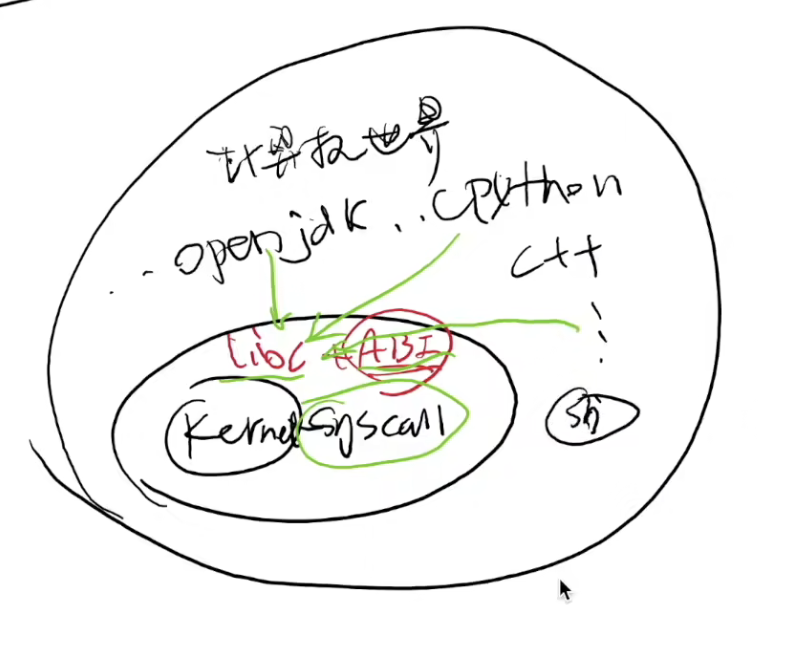 计算机世界
.. openjdk .. cpython
c++
libc + ABI
Kernel syscall
sh